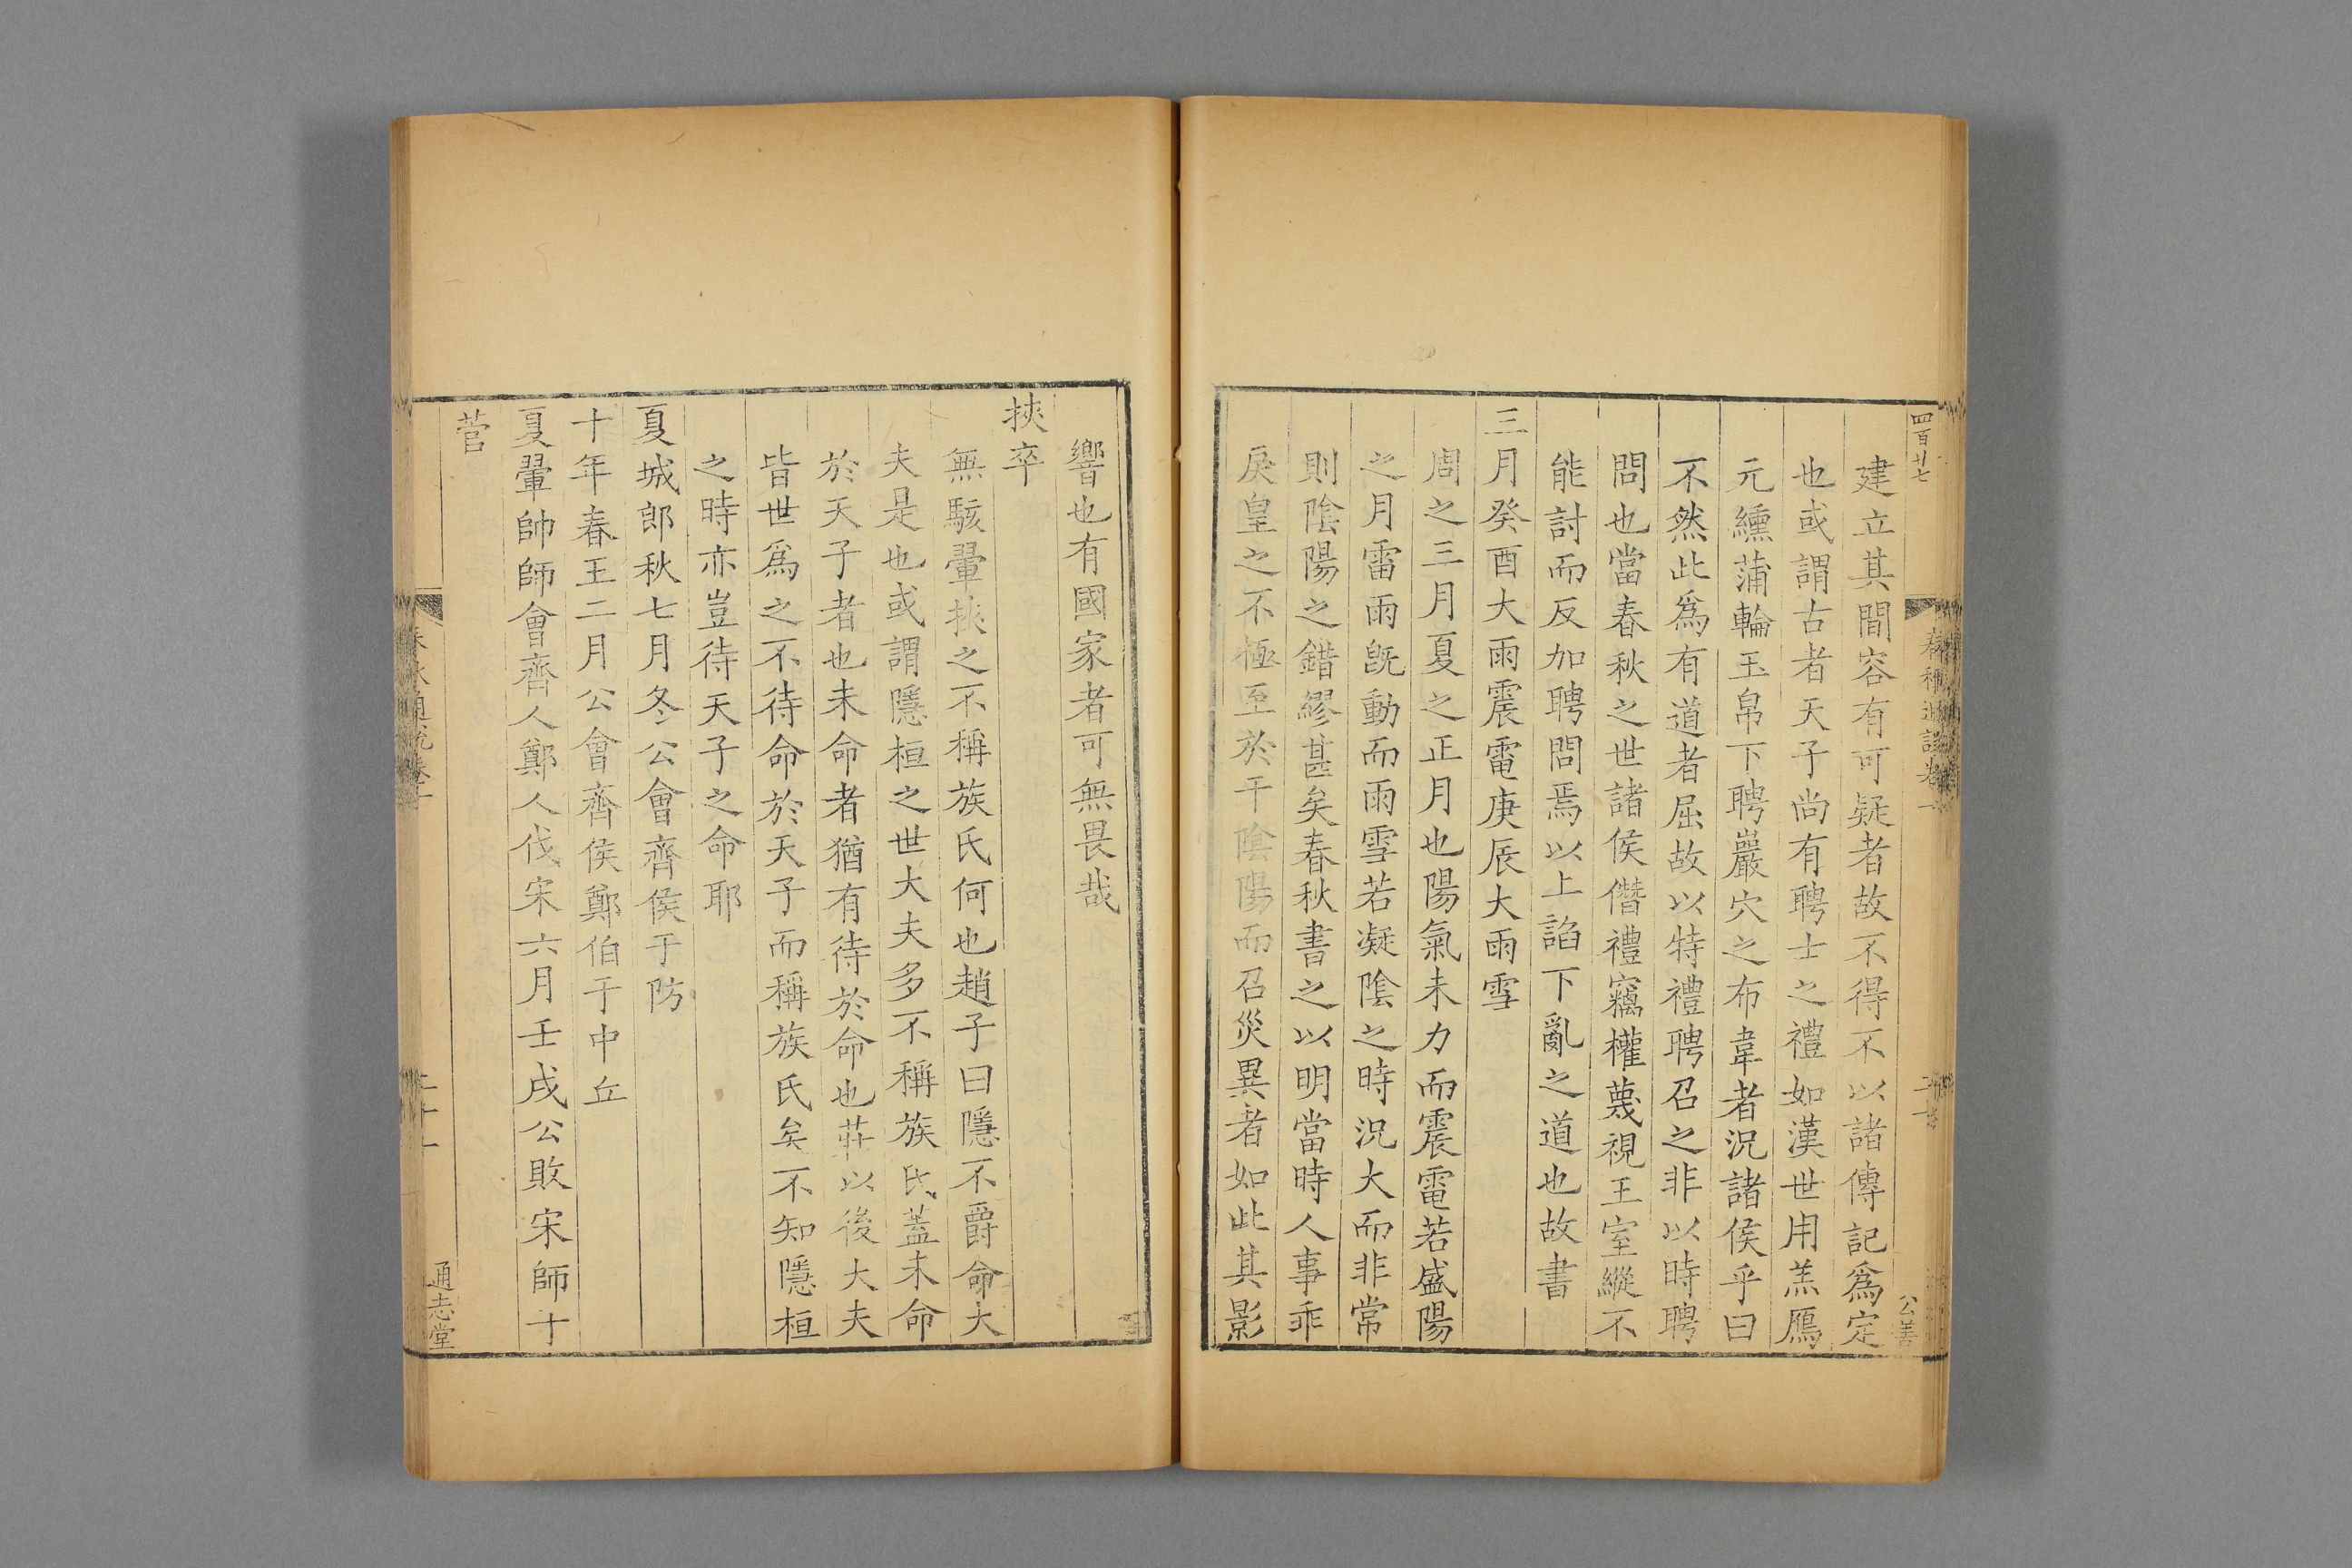 四百廿七
建立其間容有可疑者故不得不以諸傳記爲定
也或謂古者天子尚有聘士之禮如漢世用羔鴈
元纁蒲輪玉帛下聘巖穴之布韋者況諸侯乎曰
不然此爲有道者屈故以特禮聘召之非以時聘
問也當春秋之世諸侯僭禮竊權蔑視王室縱不
能討而反加聘問焉以上諂下亂之道也故書
三月癸酉大雨震電庚辰大雨雪
周之三月夏之正月也陽氣未力而震電若盛陽
之月雷雨旣動而雨雪若凝陰之時況大而非常
則陰陽之錯繆甚矣春秋書之以明當時人事乖
戾皇之不極至於干陰陽而召災異者如此其影
響也有國家者可無畏哉
挾卒
無駭翬挾之不稱族氏何也趙子曰隱不爵命大
夫是也或謂隱桓之世大夫多不稱族氏蓋未命
於天子者也未命者猶有待於命也莊以後大夫
皆世爲之不待命於天子而稱族氏矣不知隱桓
之時亦豈待天子之命耶
夏城郎秋七月冬公會齊侯于防
十年春王二月公會齊侯鄭伯于中丘
夏翬帥師會齊人鄭人伐宋六月壬戌公敗宋師于
菅
春秋通說卷一
通志堂